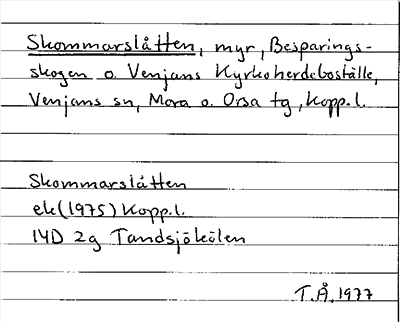 Skommarslåtten, myr, Besparings-
skogen o. Venjans Kyrkoherdeboställe,
Venjans sn, Mora o. Orsa tg, Kopp.l.
Skommarslåtten
ek(1975) Kopp.l.
14D 2g Tandsjökölen
T.Å. 1977